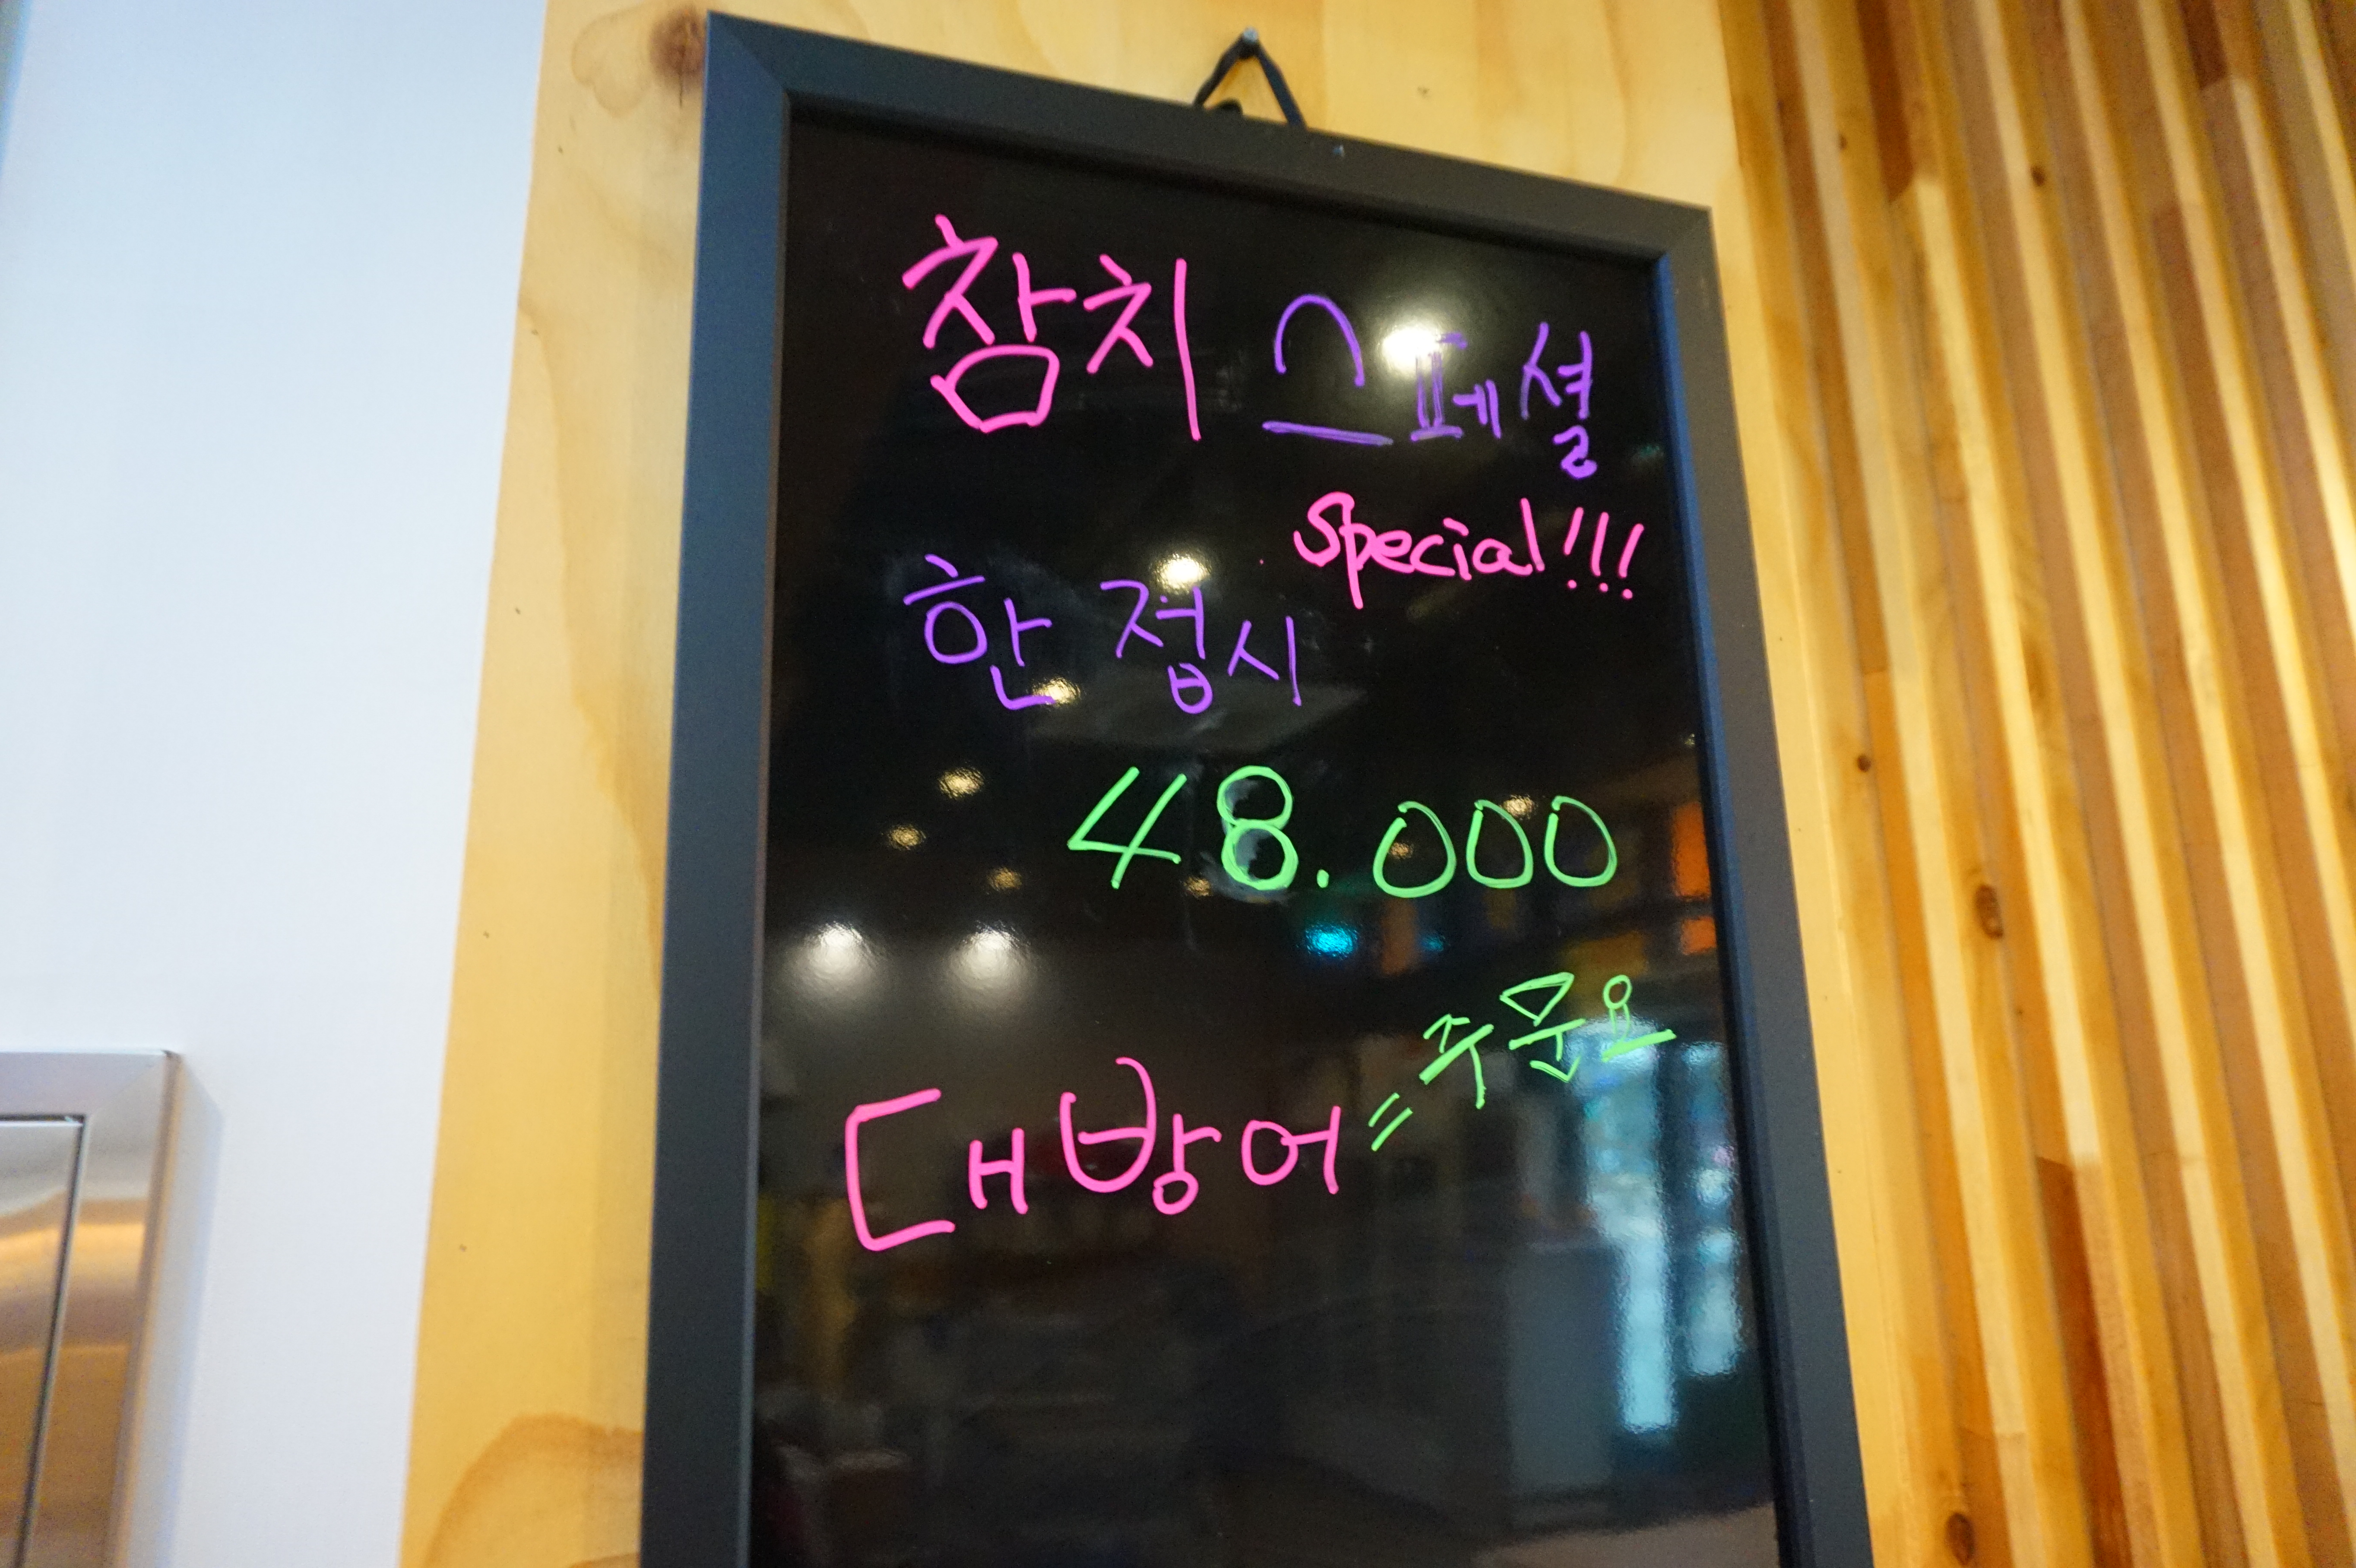 참치 스페셜
Special!!!
한 접시
48.000
대방어 = 주문요